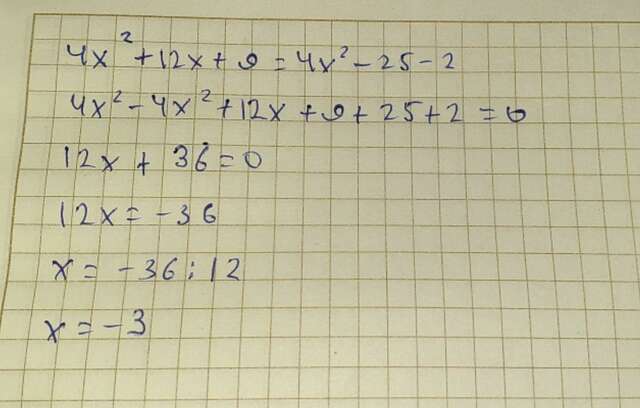 4x² + 12x + 9 = 4x² - 25 - 2
4x² - 4x² + 12x + 9 + 25 + 2 = 0
12x + 36 = 0
12x = -36
x = -36 : 12
x = -3